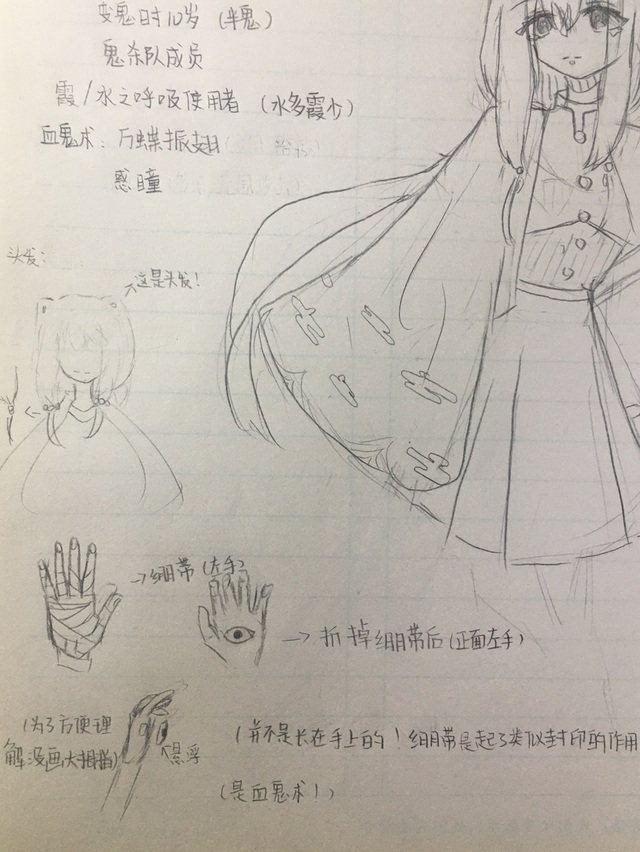 变鬼时10岁（半鬼）
鬼杀队成员
霞/水之呼吸使用者（水多霞少）
血鬼术：万蝶振翅
惑瞳
头发：
→这是头发！
→绷带（左手）
→拆掉绷带后（正面左手）
（为了方便理
解没画大拇指）
悬浮
（并不是长在手上的！绷带是起了类似封印的作用
（是血鬼术！）